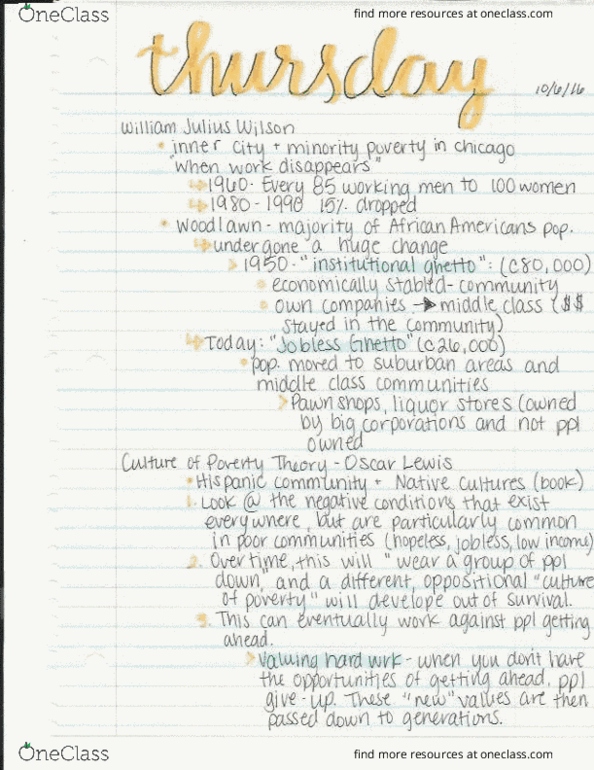 OneClass
find more resources at oneclass.com
thursday
10/6/16
William Julius Wilson
• inner city + minority poverty in chicago
"when work disappears"
↳ 1960- Every 85 working men to 100 women
↳ 1980-1990 15% dropped
• Woodlawn - majority of African Americans pop.
↳ undergone a huge change
> 1950-"institutional ghetto": (c80,000)
• economically stabled- community
• own companies → middle class ($$
stayed in the community)
↳ Today: "Jobless Ghetto" (c26,000)
• pop. moved to suburban areas and
middle class communities
> Pawn shops, liquor stores (owned
by big corporations and not ppl
owned
Culture of Poverty Theory - Oscar Lewis
• Hispanic community + Native Cultures (book)
1. Look @ the negative conditions that exist
everywhere, but are particularly common
in poor communities (hopeless, jobless, low income)
2. Overtime, this will "wear a group of ppl
down, and a different, oppositional "culture
of poverty" will develope out of survival.
3. This can eventually work against ppl getting
ahead.
> Valuing hard wrk - when you don't have
the opportunities of getting ahead, ppl
give-up. These "new" values are then
passed down to generations.
OneClass
find more resources at oneclass.com